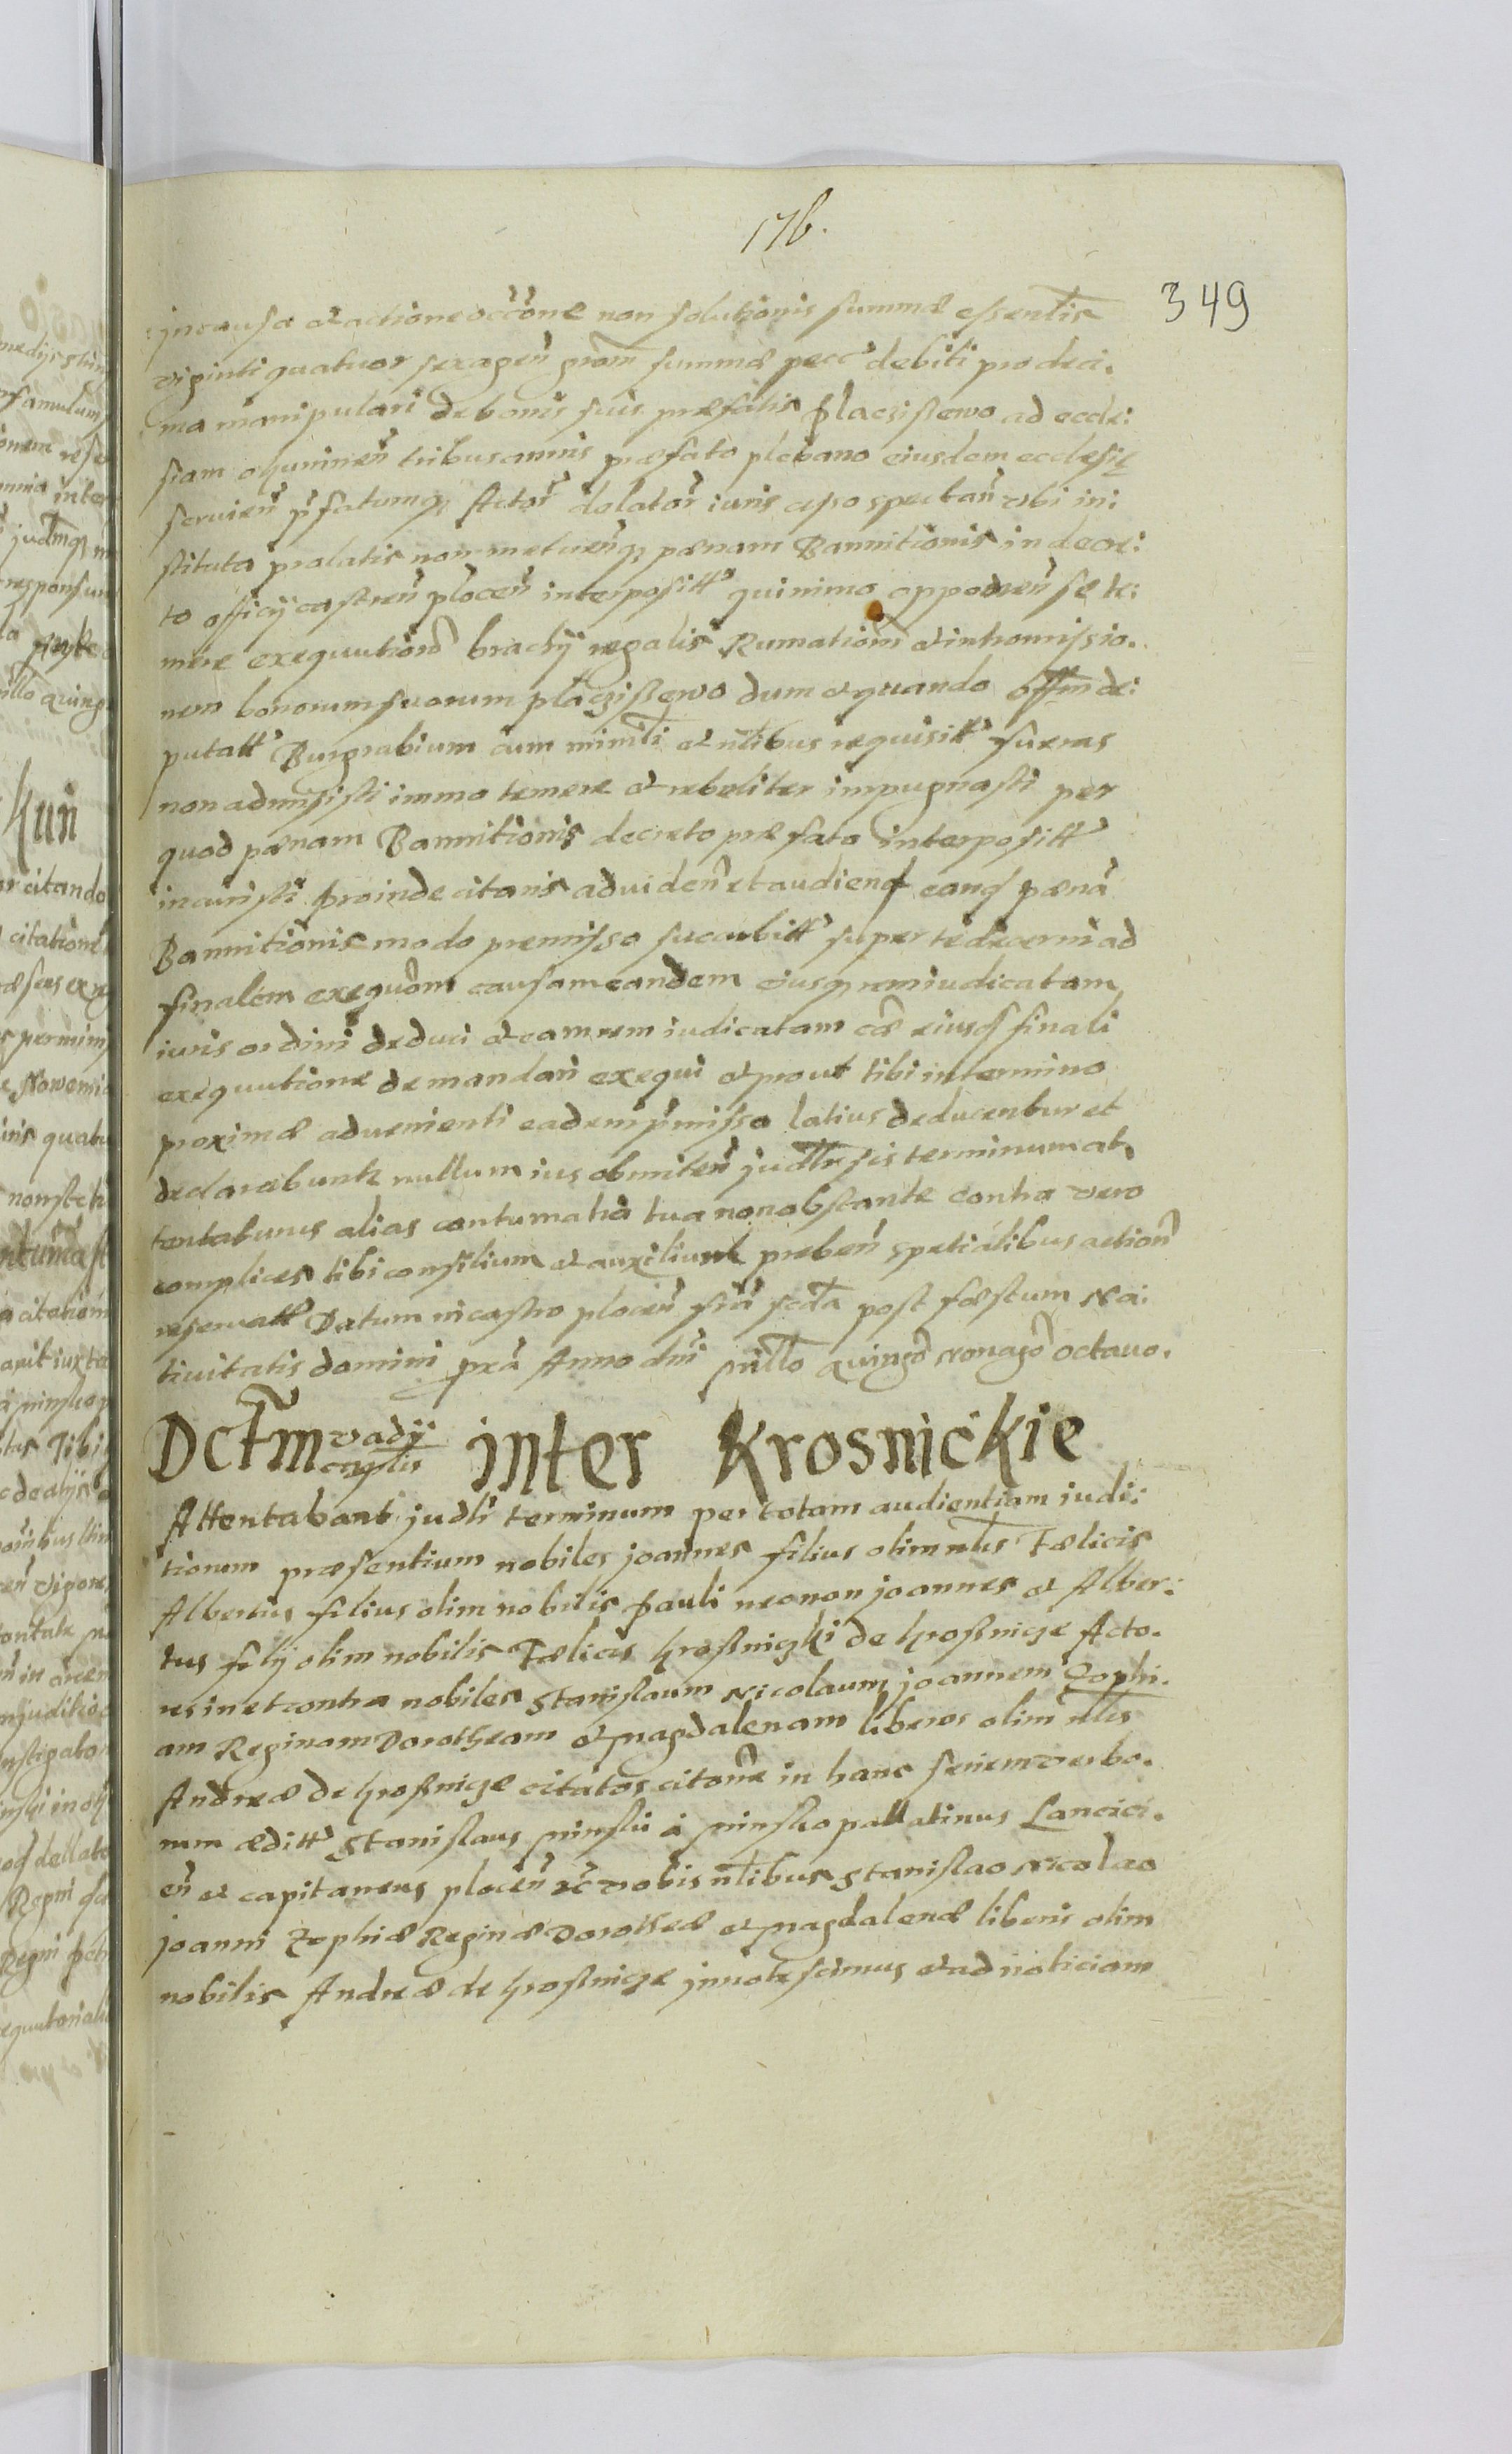 176.
349
in causa et actione occône non solutionis summæ essentlis
viginti quatuor sexagen̄ grōm summæ pecc̄ debiti pro deci.
ma manipulari de bonis suis præfatis Placziszewo ad eccle:
siam tribus annis præfato plebano eiusdem ecclesię
servien̄ p̄fatumq; Actor̄ delator̄ iuris ex eo spectan̄ tibi in:
stituta prolatis non metuen̄q; pænam Bannitionis in decre:
to officij castren̄ plocen̄ interposittˀ quinimo opponen̄ se te:
mere exequutionj brachij regalis Rumationj et intromissio.
nem bonorum suorum placziszewo dum et quando offm de:
putattˀ Burgrabium cum minrli et nlibus requisittˀ fueras
non admisisti immo temere et rebeliter impugnasti per
quod pænam Bannitionis decreto præfato interposittˀ
incuristi proinde citaris ad viden̄ et audiend eand pænā
Bannitionis modo premisso succubittˀ super te decerni ad
finalem exequōm causam eandem eiusq; rem iudicatam
iuris ordini deduci et eam rem iudicatam cāæ eiusd finali
exequutione demandari exequi et prout tibi in termino
proximæ advenienti eadem p̄missa latius deducentur et
declarabuntr nullum ius obmitten̄ judllr sis terminum at.
tentaturus alias contumatia tua non obstante contra vero
complices tibi consilium et auxilium preben̄ spetialibus action̄
reservattˀ Datum in castro plocen̄ fria scda post fæstum Na:
tivitatis domini pxā Anno dni Millo quingō Nonagō octavo.
Dctm vadij cōpetis inter Krosnickie
Attentabant judli terminum per totam audientiam iudi:
tiorum præsentium nobiles joannes filius olim nlis Fælicis
Albertus filius olim nobilis Pauli necnon joannes et Alber:
tus filij olim nobilis Fælicis Kroszniczki de Krosznicze Acto.
res in et contra nobiles Stanislaum Nicolaum joannem Zophi.
am Reginam Dorotheam et Magdalenam liberos olim nlis
Andreæ de Krosznicze citatos citōne in hanc seriem verbo.
rum ædittˀ Stanislaus Minski á Minsko pallatinus Lancici.
en̄ et capitaneus plocen̄ &c̄ vobis nlibus Stanislao Nicolao
joanni Zophiæ Reginæ Dorotheæ et Magdalenæ liberis olim
nobilis Andreæ de Krosznicze innotescimus et ad noticiam